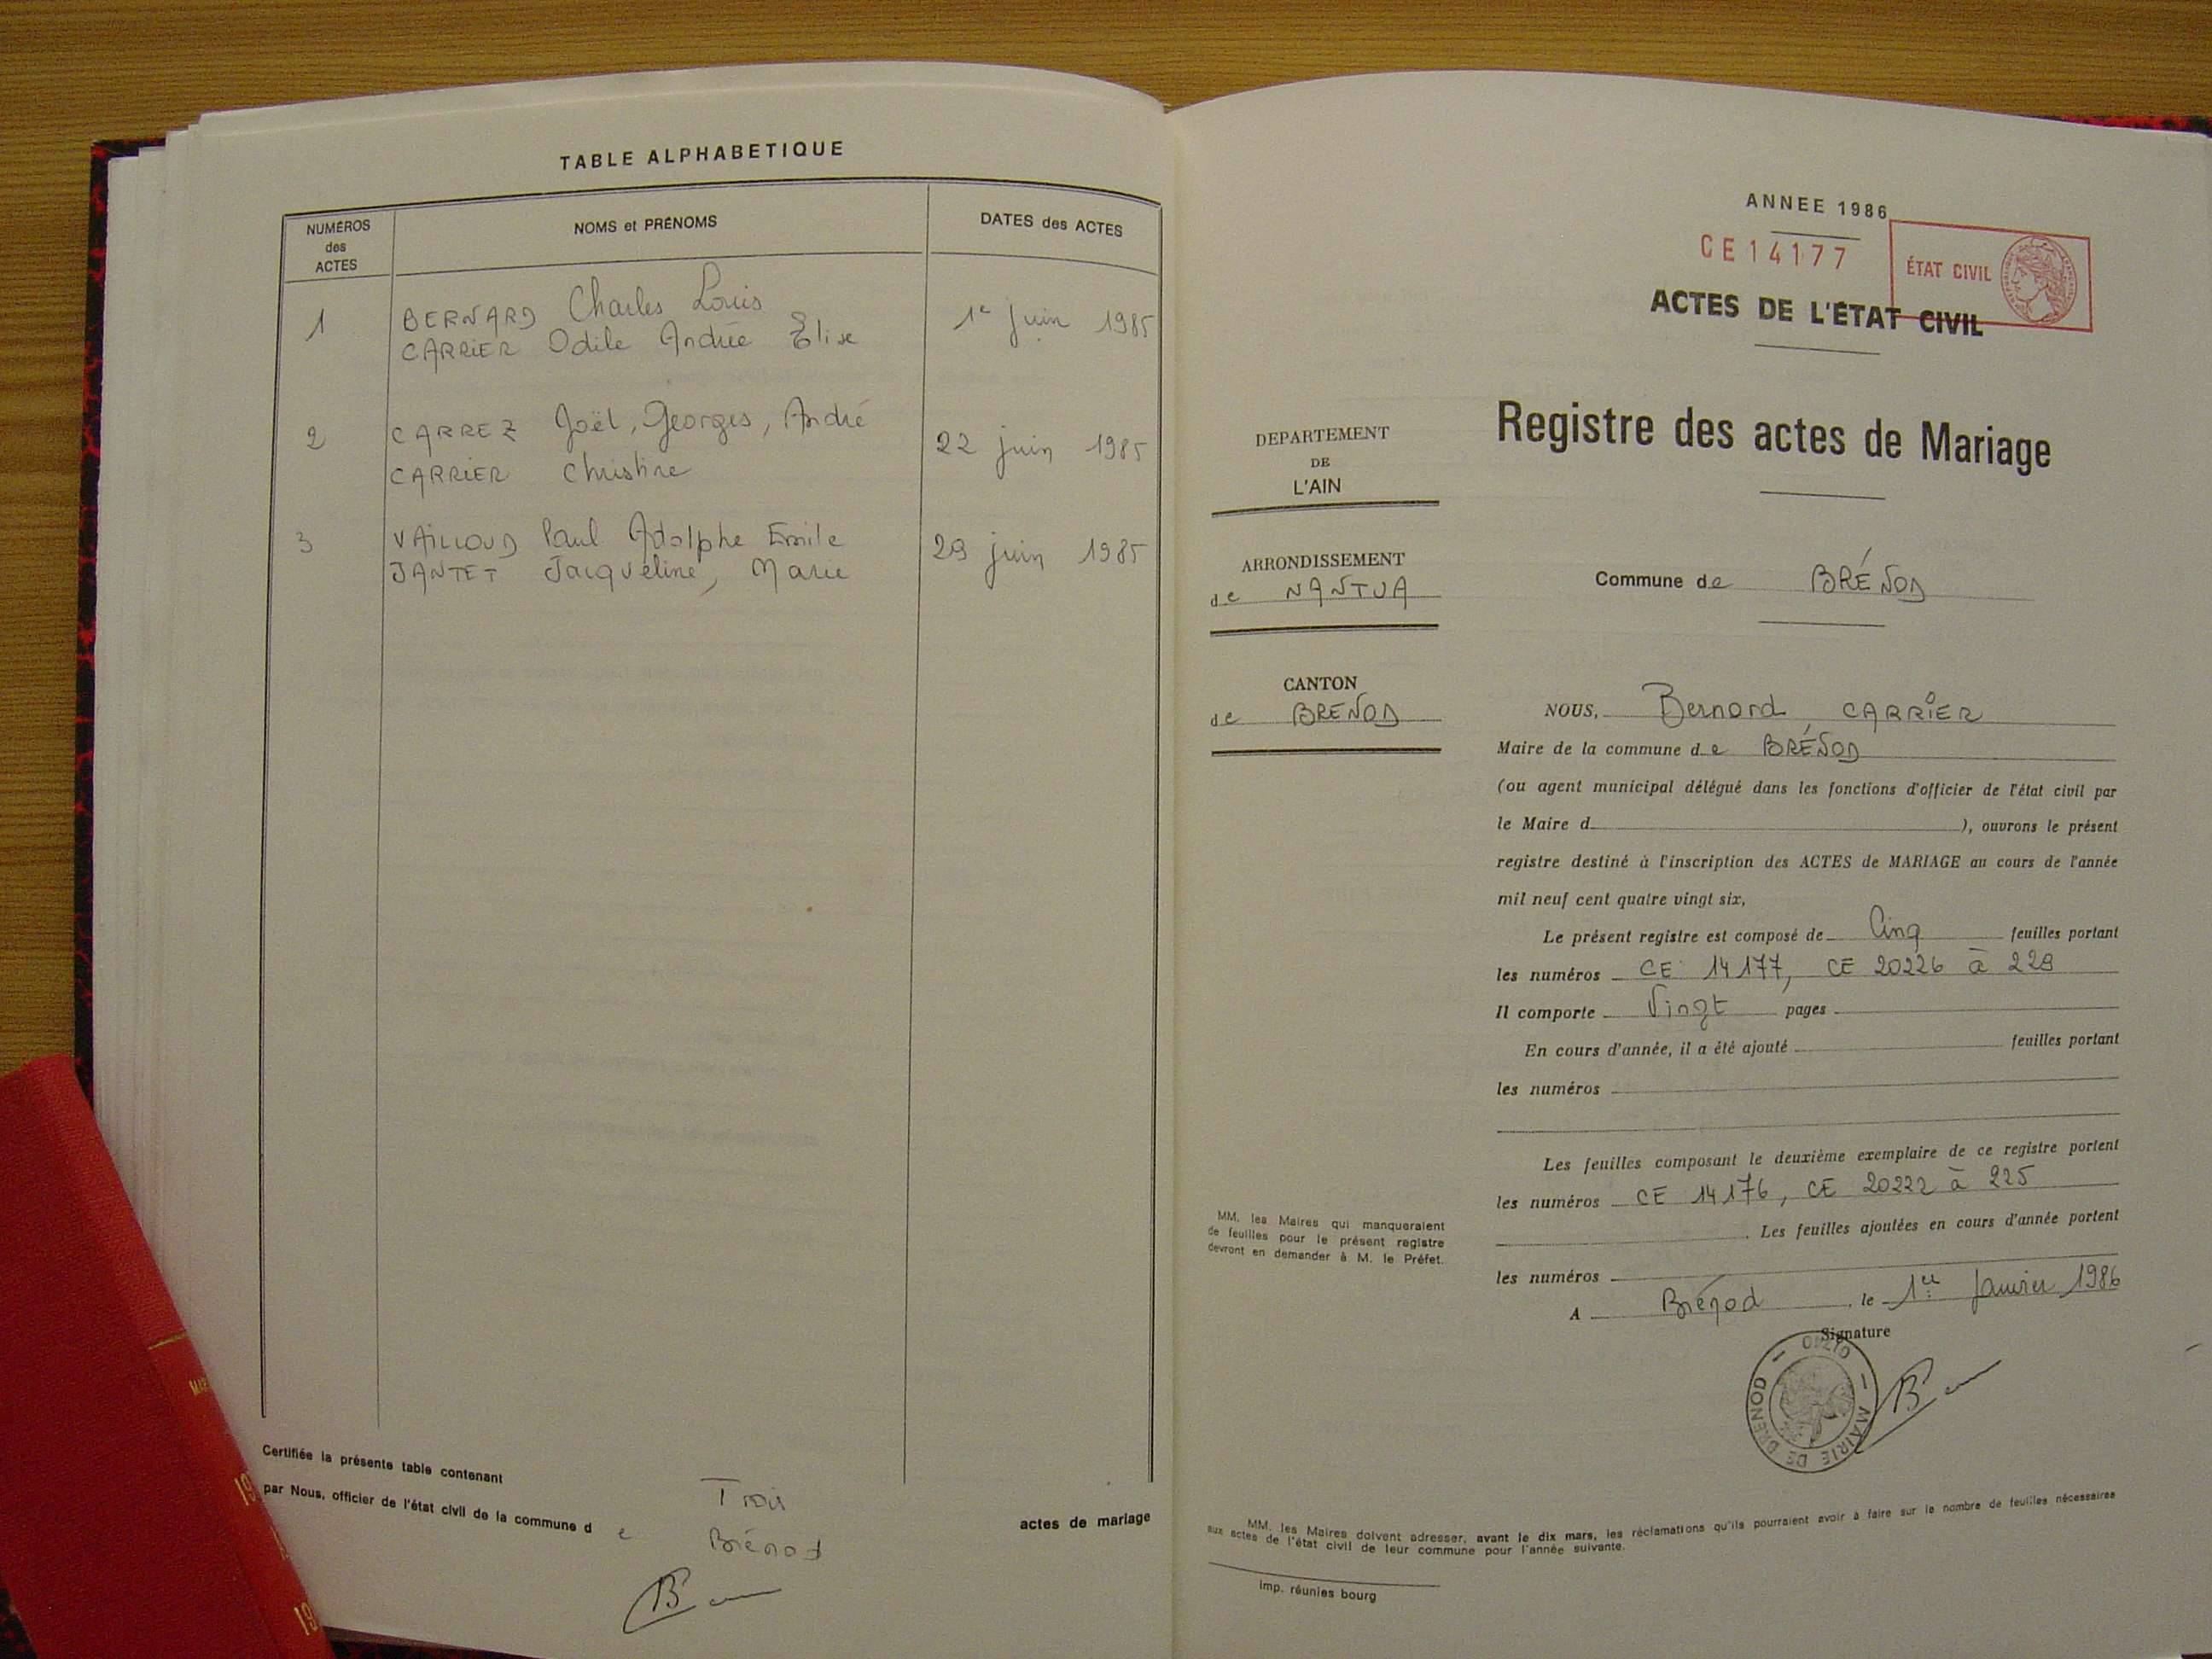 TABLE ALPHABETIQUE
NUMÉROS
des
ACTES
NOMS et PRÉNOMS
DATES des ACTES
1
BERNARD Charles Louis
CARRIER Odile Andrée Élise
1e juin 1985
2
CARREZ Joël, Georges, André
CARRIER Christine
22 juin 1985
3
VAILLOUD Paul Adolphe Emile
JANTET Jacqueline, Marie
29 juin 1985
Certifiée la présente table contenant Trois actes de mariage
par Nous, officier de l'état civil de la commune de Brénod
ANNEE 1986
CE14177
ÉTAT CIVIL
ACTES DE L'ÉTAT CIVIL
Registre des actes de Mariage
DEPARTEMENT
DE
L'AIN
ARRONDISSEMENT
de NANTUA
CANTON
de BRENOD
Commune de BRÉNOD
NOUS, Bernard CARRIER
Maire de la commune de BRÉNOD
(ou agent municipal délégué dans les fonctions d'officier de l'état civil par
le Maire d ), ouvrons le présent
registre destiné à l'inscription des ACTES de MARIAGE au cours de l'année
mil neuf cent quatre vingt six,
Le présent registre est composé de Cinq feuilles portant
les numéros CE 14177, CE 20226 à 229
Il comporte Vingt pages
En cours d'année, il a été ajouté feuilles portant
les numéros
Les feuilles composant le deuxième exemplaire de ce registre portent
les numéros CE 14176, CE 20222 à 225
. Les feuilles ajoutées en cours d'année portent
les numéros
A Brénod, le 1er Janvier 1986
Signature
MAIRIE DE BRENOD
MM. les Maires qui manqueraient
de feuilles pour le présent registre
devront en demander à M. le Préfet.
MM. les Maires doivent adresser, avant le dix mars, les réclamations qu'ils pourraient avoir à faire sur le nombre de feuilles nécessaires
aux actes de l'état civil de leur commune pour l'année suivante.
Imp. réunies bourg